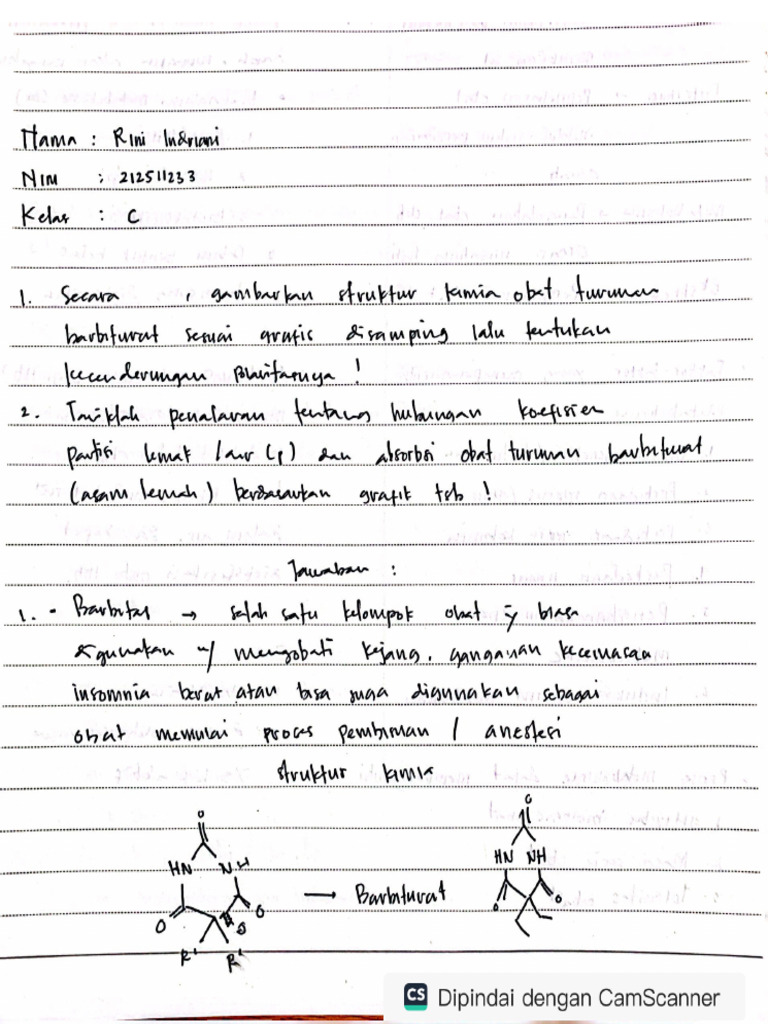 Nama : Rini Indriani
NIM : 212511233
Kelas : C
1. Secara , gambarkan struktur kimia obat turunan
barbiturat sesuai grafis disamping lalu tentukan
kecenderungan polaritasnya !
2. Tariklah penalaran tentang hubungan koefisien
partisi lemak / air (p) dan absorbsi obat turunan barbiturat
(asam lemah) berdasarkan grafik tsb !
Jawaban :
1. - Barbital → salah satu kelompok obat yg biasa
digunakan u/ mengobati kejang, gangguan kecemasan
insomnia berat atau bisa juga digunakan sebagai
obat memulai proses pembiusan / anestesi
struktur kimia
O O
HN NH HN NH
→ Barbiturat
O 5 O O O
R' R'
CS Dipindai dengan CamScanner